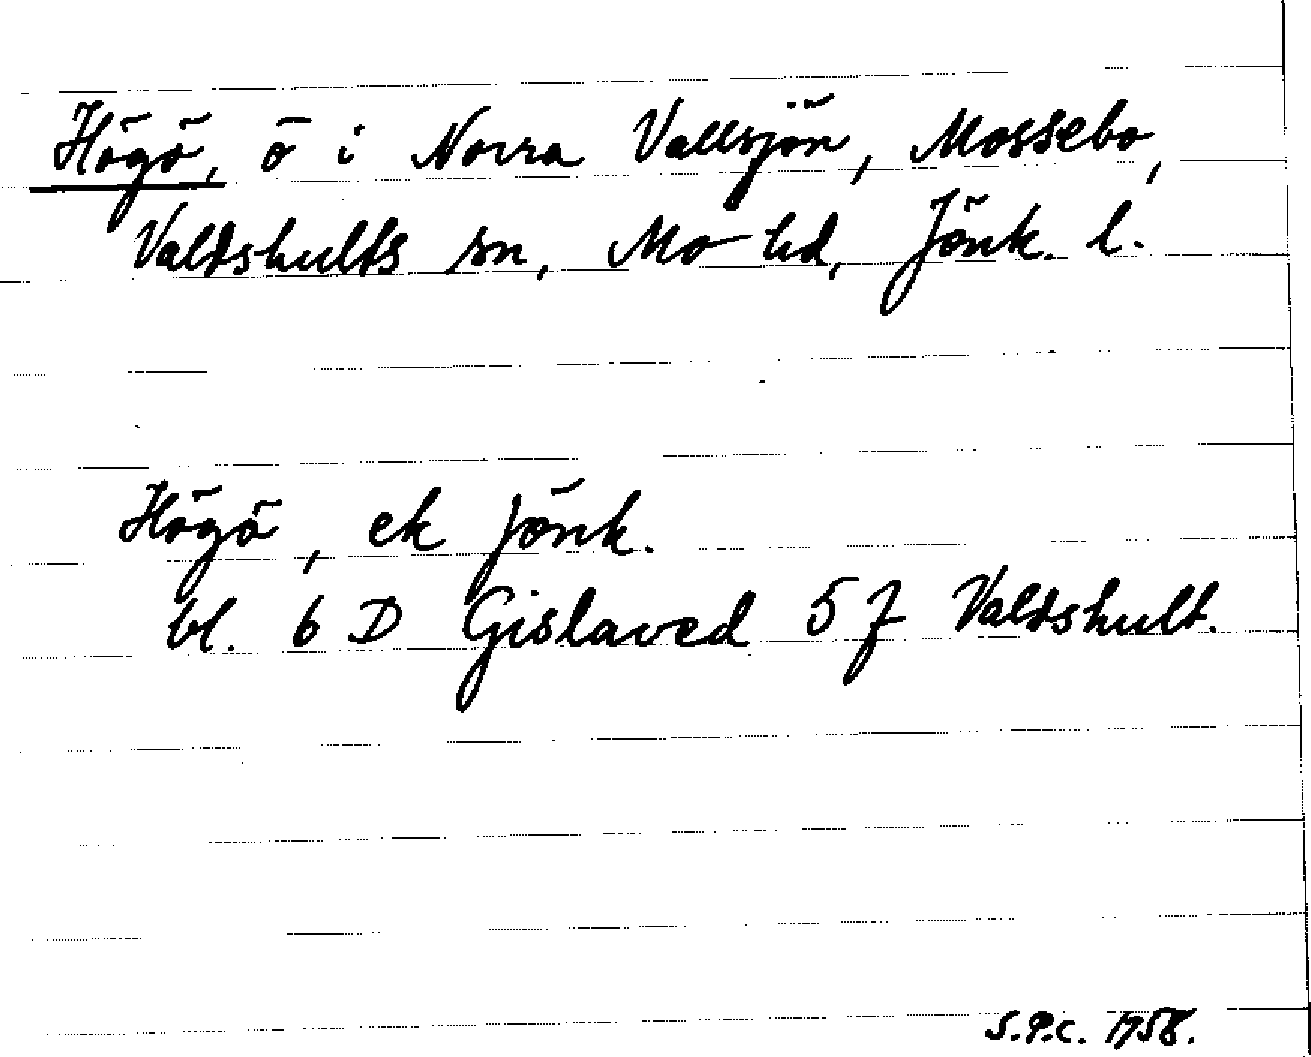 Högö, ö i Norra Vallsjön, Mossebo,
Valdshults sn, Mo hd, Jönk. l.
Högö, ek Jönk.
bl. 6 D Gislaved 5 f Valdshult.
S.P.C. 1958.